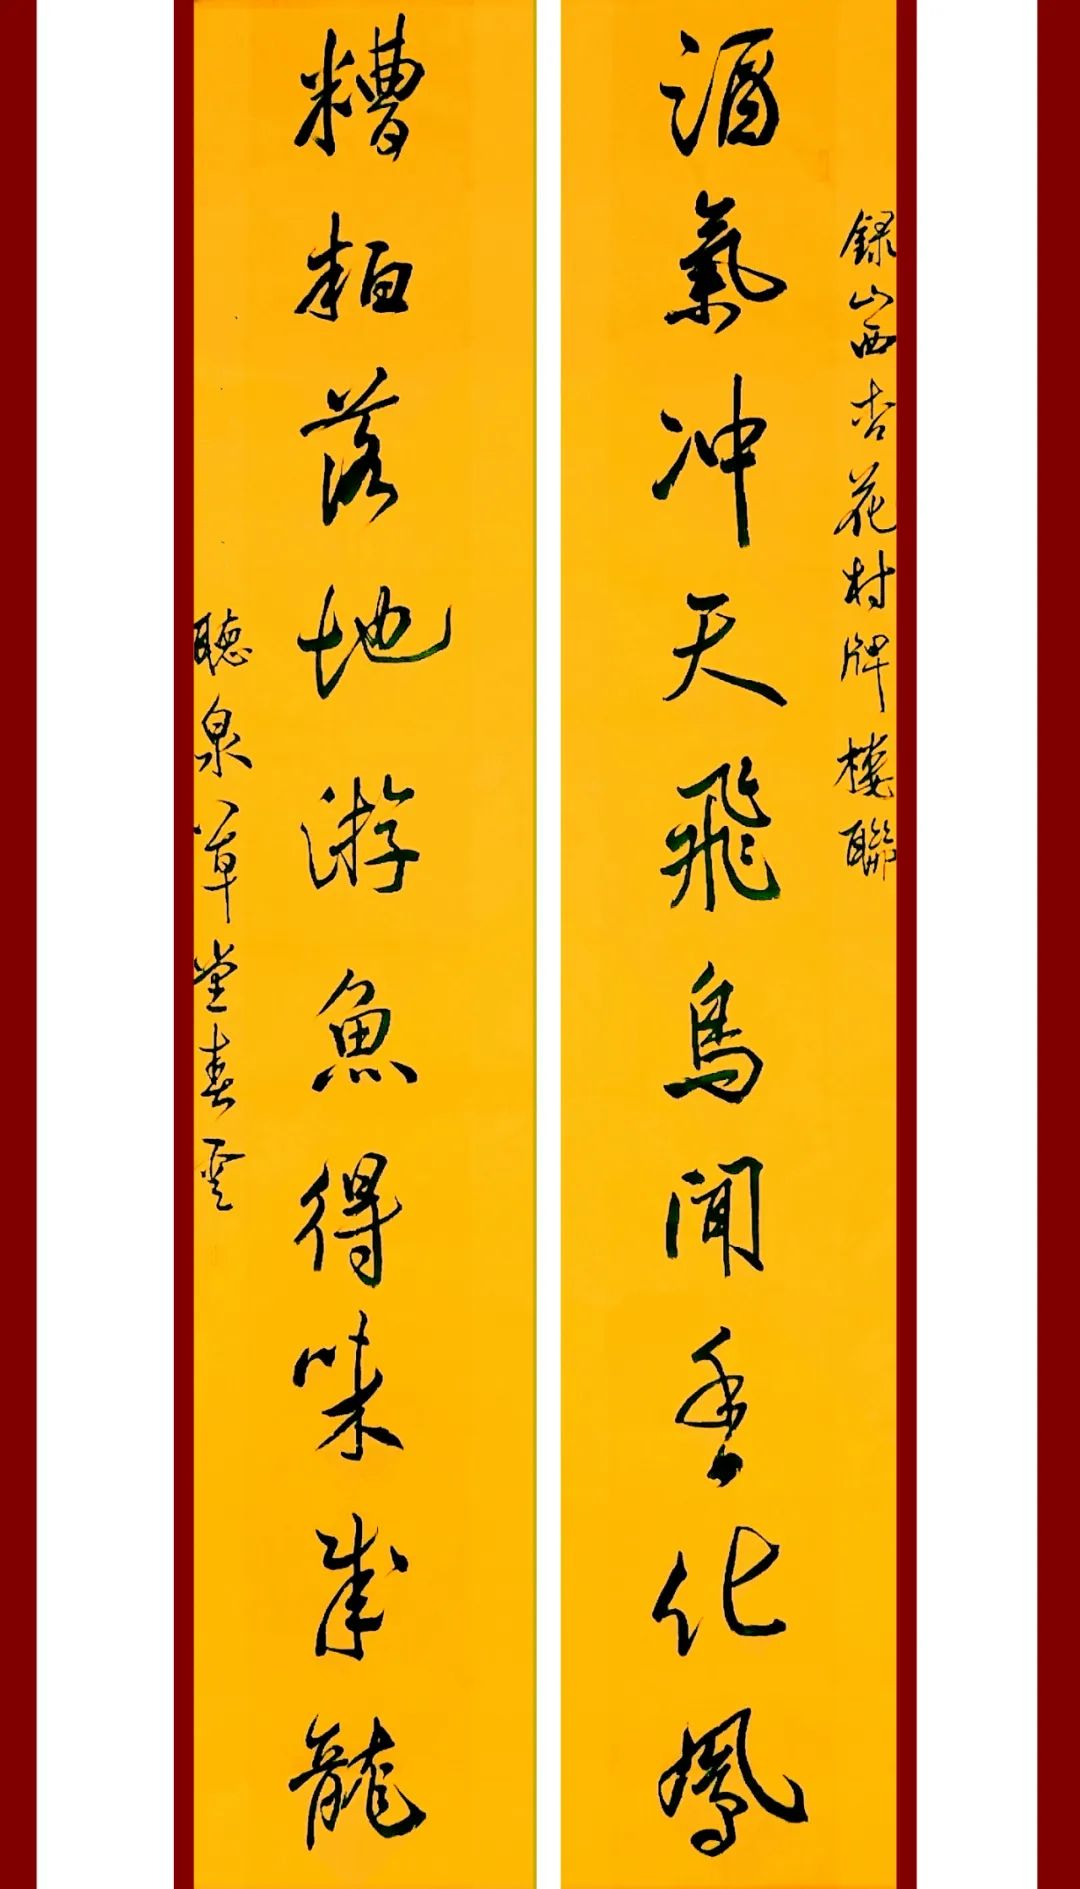 錄山西杏花村牌樓聯
酒氣冲天飛鳥聞香化鳳
糟粕落地游魚得味成龍
聽泉草堂春雲